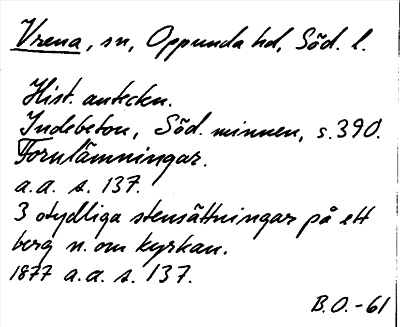 Vrena, sn, Oppunda hd, Söd. l.
Hist. anteckn.
Indebetou, Söd. minnen, s. 390.
Fornlämningar.
a.a. s. 137.
3 otydliga stensättningar på ett
berg n. om kyrkan.
1877 a.a. s. 137.
B.O.-61